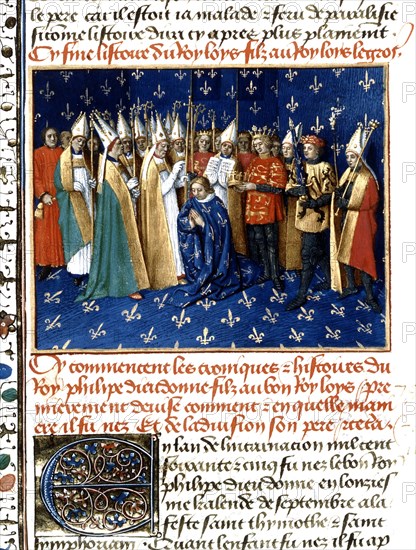 le pere car il estoit ia malade & feru de paralisie
si cõme listoire dira cy apres plus plainemẽt
Cy fine listoire du Roy loys filz au Roy loys le gros.
Cy commencent les croniques & histoires du
Roy phelipe dieudonne filz au bon Roy loys pre
mierement devise comment & en quelle mani
ere il fu nez Et de la vision son pere &cetera.
En lan de lincarnacion mil cent
soixante & cinq fu nez le bon Roy
phelipe dieudonne en lonzies
me kalende de septembre a la
feste saint thymothe & saint
symphorian Quant lenfant fu nez il fu ap